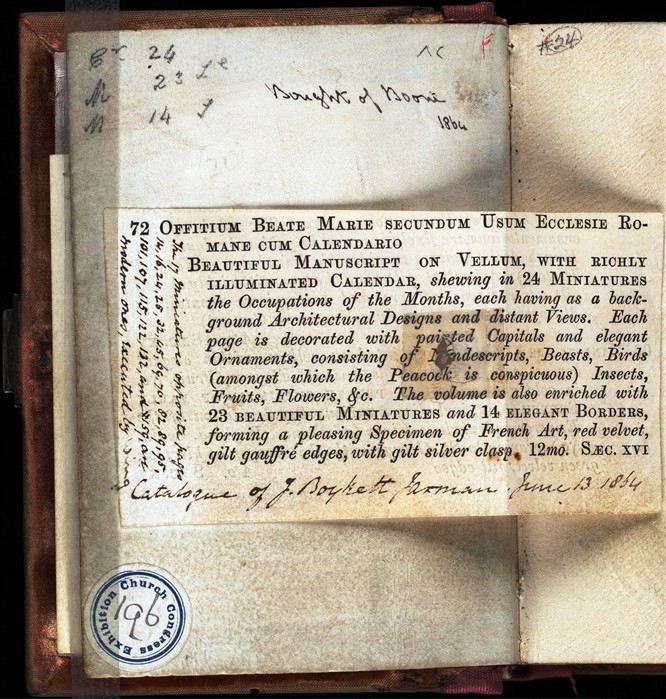 24
#24
23
M 14
Bought of Boone
1864
72 OFFITIUM BEATE MARIE SECUNDUM USUM ECCLESIE RO-
MANE CUM CALENDARIO
BEAUTIFUL MANUSCRIPT ON VELLUM, WITH RICHLY
ILLUMINATED CALENDAR, shewing in 24 MINIATURES
the Occupations of the Months, each having as a back-
ground Architectural Designs and distant Views. Each
page is decorated with painted Capitals and elegant
Ornaments, consisting of Nondescripts, Beasts, Birds
(amongst which the Peacock is conspicuous) Insects,
Fruits, Flowers, &c. The volume is also enriched with
23 BEAUTIFUL MINIATURES and 14 ELEGANT BORDERS,
forming a pleasing Specimen of French Art, red velvet,
gilt gauffré edges, with gilt silver clasp. 12mo. SÆC. XVI
The 17 miniatures opposite pages
14, 16, 24, 28, 32, 65, 69, 70, 82, 89, 95,
101, 107, 115, 122, 132, and 159, are
modern ones, executed by
Catalogue of J. Boykett Jarman. June 13 1864
Exhibition Church Congress
196